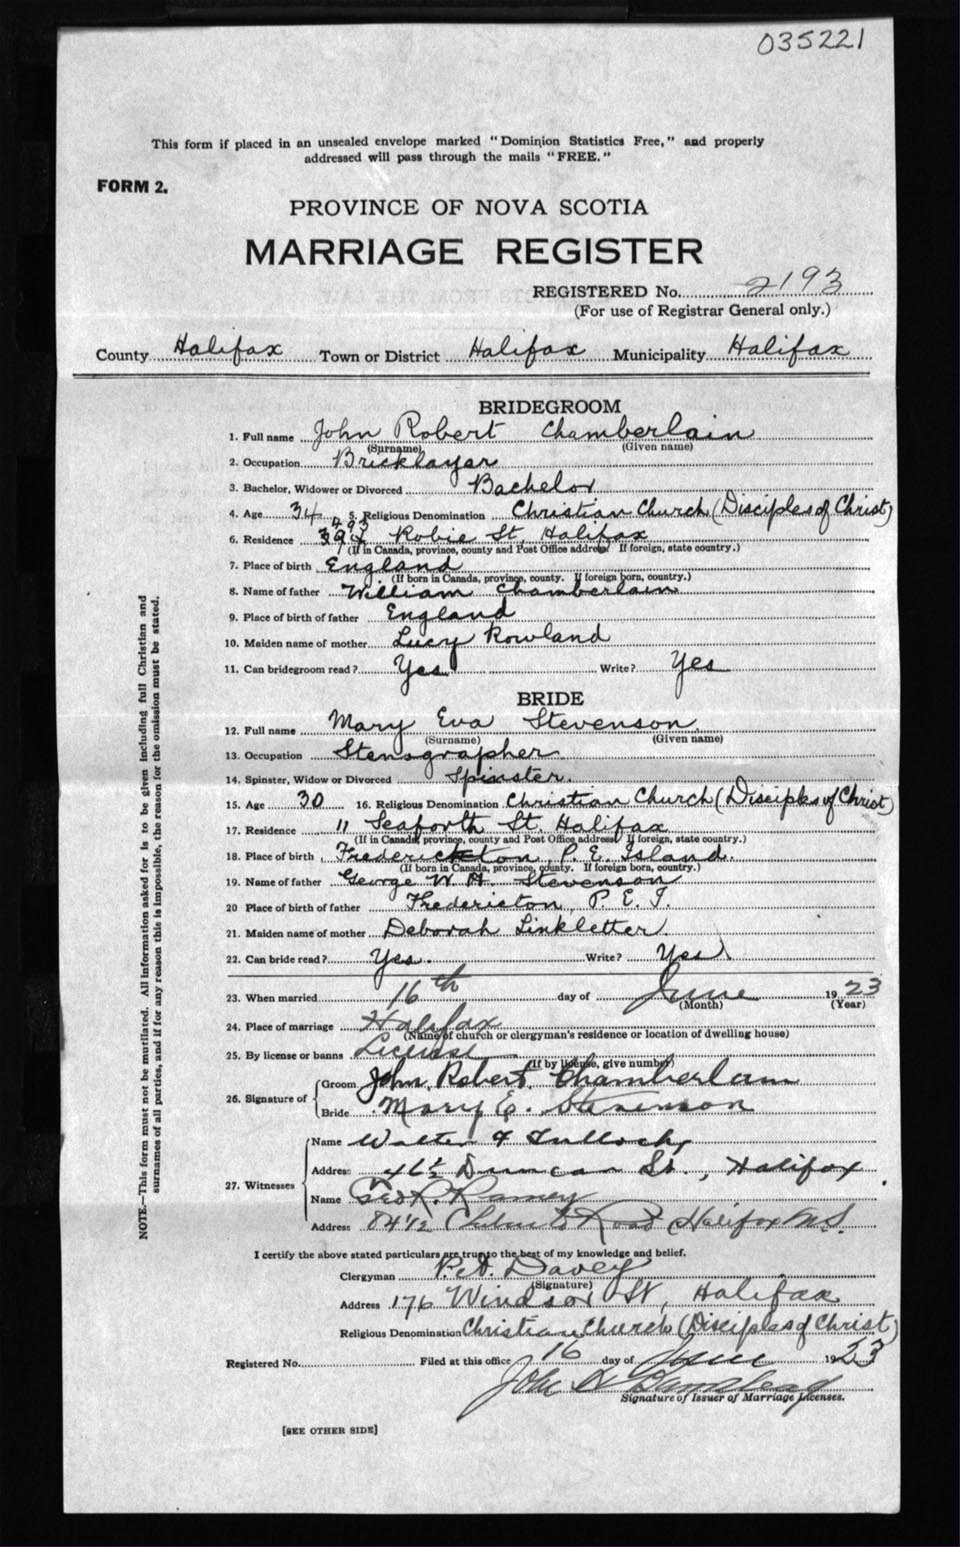 035221
This form if placed in an unsealed envelope marked "Dominion Statistics Free," and properly
addressed will pass through the mails "FREE."
FORM 2.
PROVINCE OF NOVA SCOTIA
MARRIAGE REGISTER
REGISTERED No. 2193
(For use of Registrar General only.)
County Halifax Town or District Halifax Municipality Halifax
BRIDEGROOM
1. Full name John Robert Chamberlain
(Surname) (Given name)
2. Occupation Bricklayer
3. Bachelor, Widower or Divorced Bachelor
4. Age 34 5. Religious Denomination Christian Church (Disciples of Christ)
6. Residence 493 Robie St, Halifax
(If in Canada, province, county and Post Office address. If foreign, state country.)
7. Place of birth England
(If born in Canada, province, county. If foreign born, country.)
8. Name of father William Chamberlain
9. Place of birth of father England
10. Maiden name of mother Lucy Rowland
11. Can bridegroom read? Yes Write? Yes
BRIDE
12. Full name Mary Eva Stevenson
(Surname) (Given name)
13. Occupation Stenographer
14. Spinster, Widow or Divorced Spinster.
15. Age 30 16. Religious Denomination Christian Church (Disciples of Christ)
17. Residence 11 Seaforth St. Halifax
(If in Canada, province, county and Post Office address. If foreign, state country.)
18. Place of birth Fredericton, P. E. Island.
(If born in Canada, province, county. If foreign born, country.)
19. Name of father George W. H. Stevenson
20 Place of birth of father Fredericton, P. E. I.
21. Maiden name of mother Deborah Linkletter
22. Can bride read? Yes. Write? Yes
23. When married 16th day of June 1923
(Month) (Year)
24. Place of marriage Halifax
(Name of church or clergyman's residence or location of dwelling house)
25. By license or banns License
(If by license, give number)
26. Signature of Groom John Robert Chamberlain
Bride Mary E. Stevenson
27. Witnesses
Name Walter F Tulloch
Address 46½ Duncan St., Halifax.
Name Geo R. Ramey
Address 84½ Road Halifax N.S.
I certify the above stated particulars are true to the best of my knowledge and belief.
Clergyman P. A. Davey
(Signature)
Address 176 Windsor St, Halifax
Religious Denomination Christian Church (Disciples of Christ)
Registered No. Filed at this office 16 day of June 1923
John
Signature of Issuer of Marriage Licenses.
[SEE OTHER SIDE]
NOTE.—This form must not be mutilated. All information asked for is to be given including full Christian and
surnames of all parties, and if for any reason this is impossible, the reason for the omission must be stated.